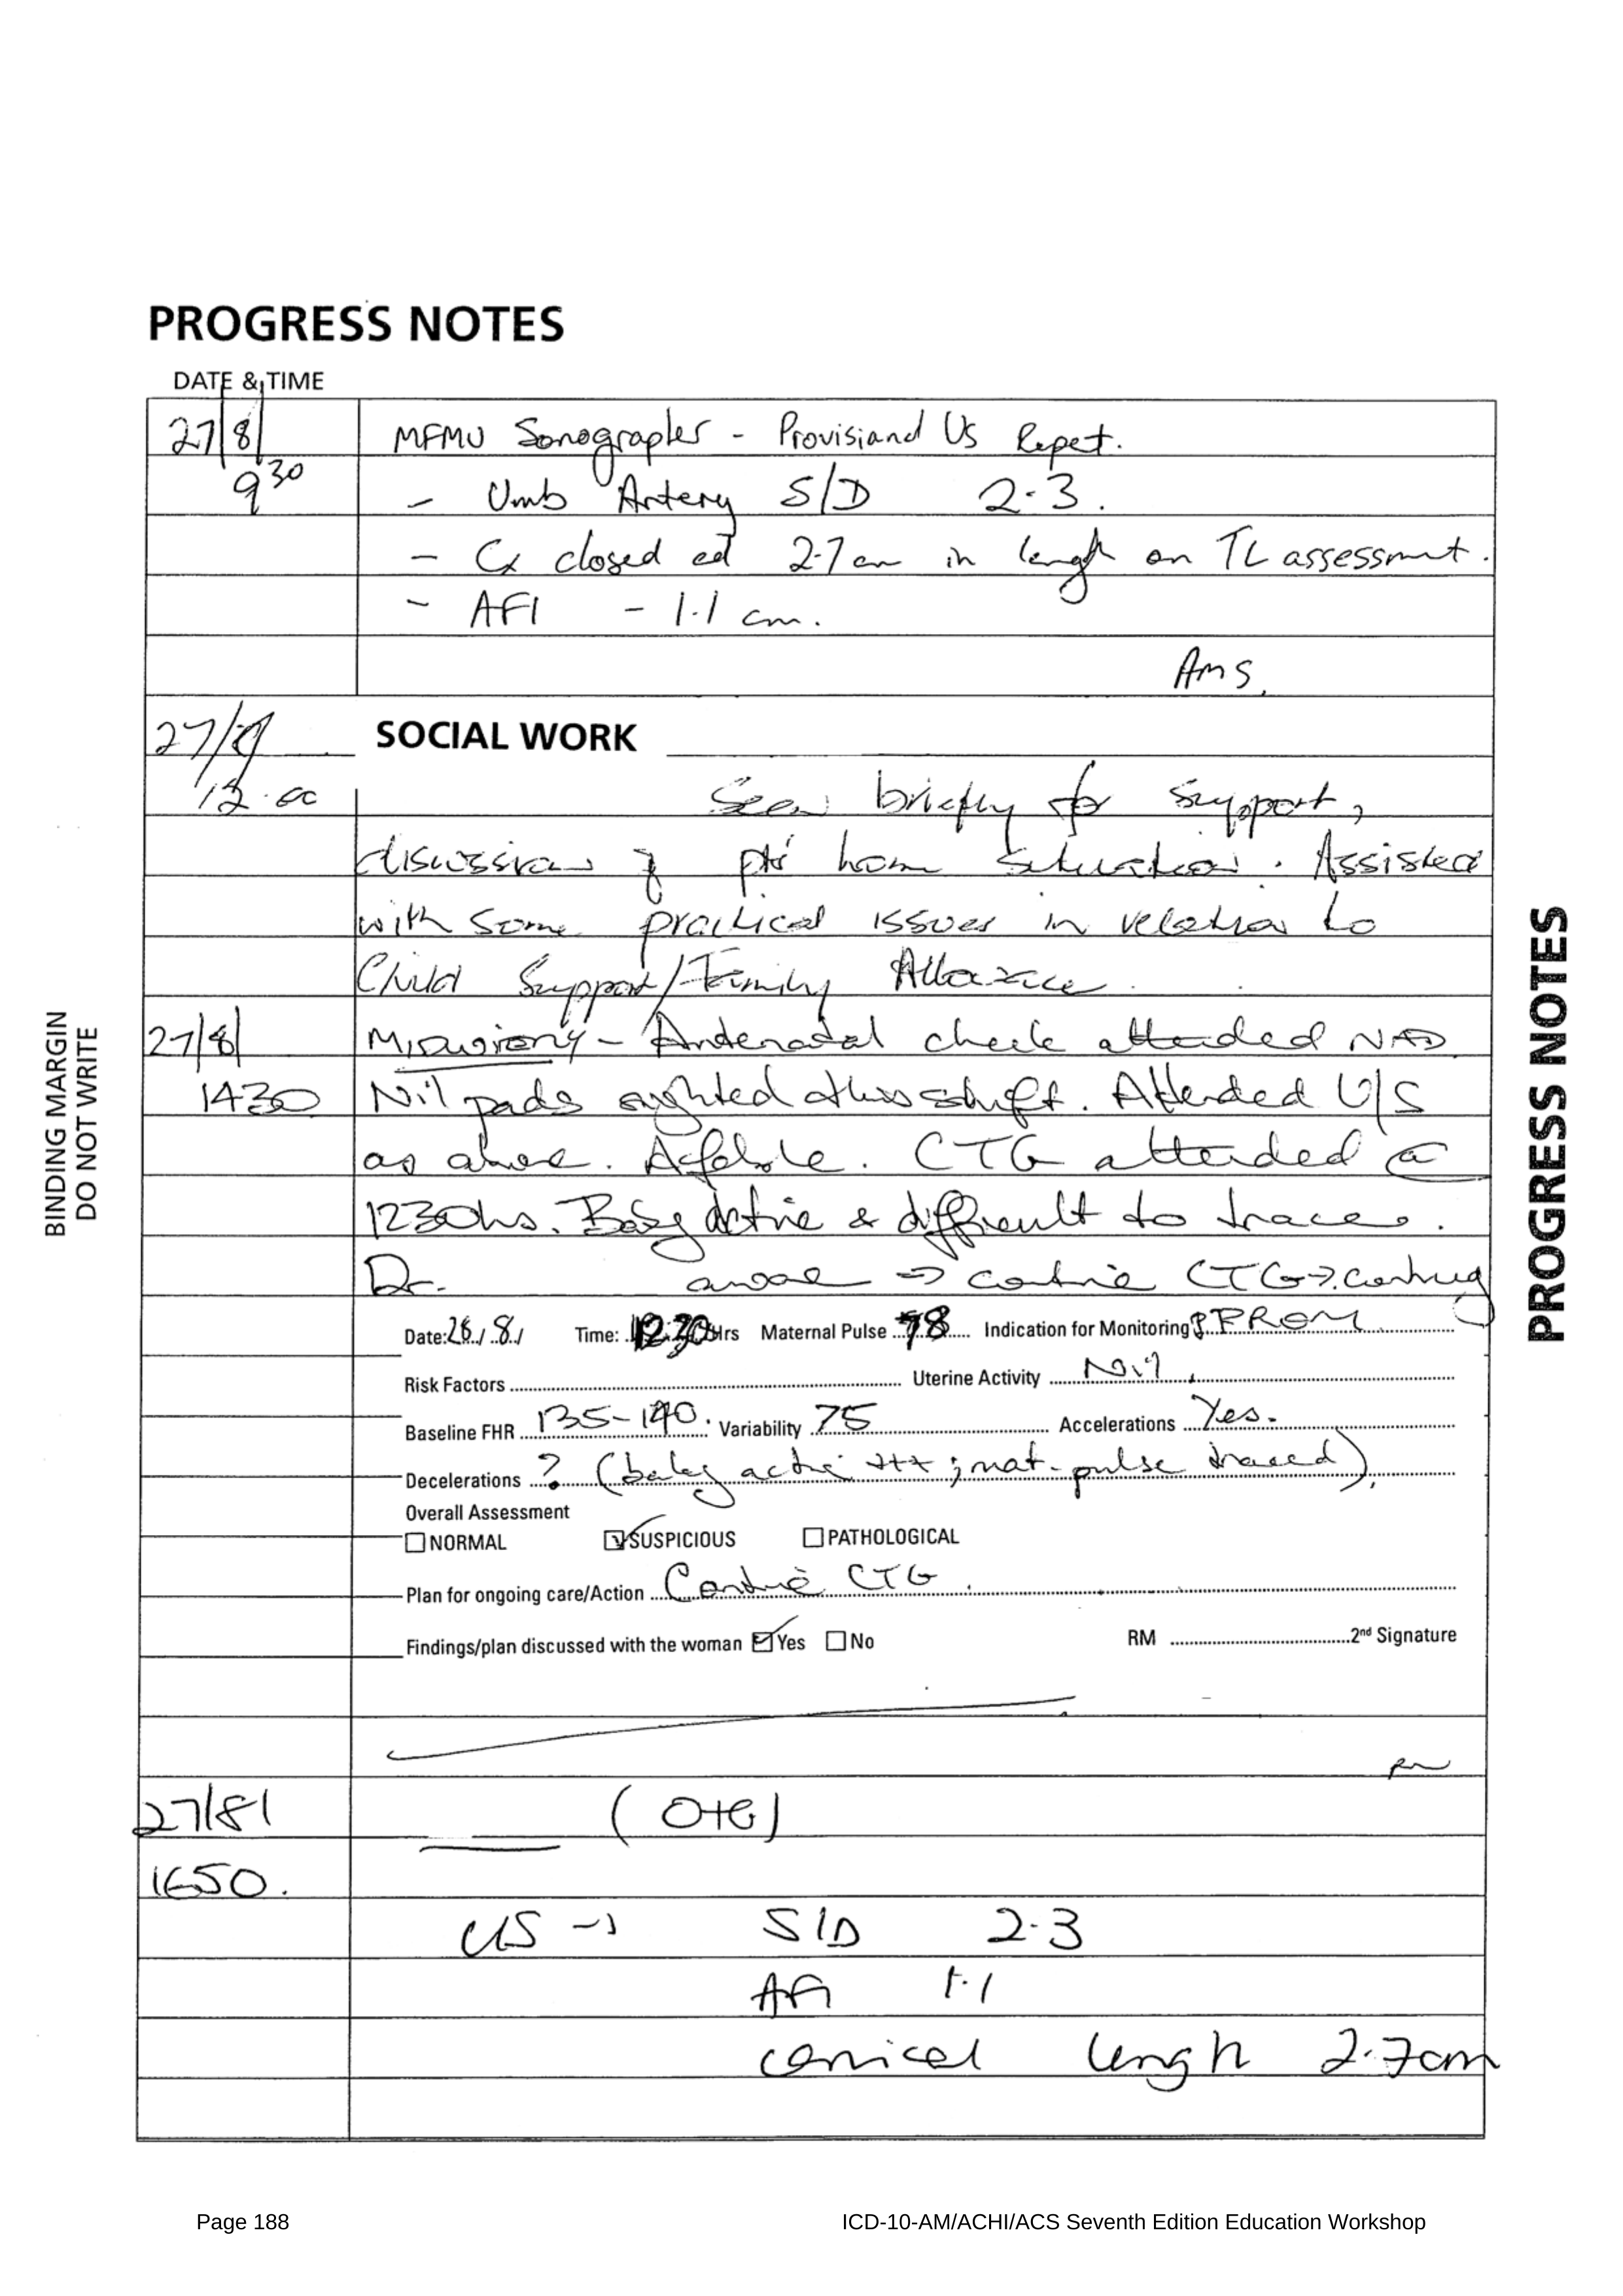 PROGRESS NOTES
DATE & TIME
27/8/ MFMU Sonographer - Provisional Us Repot.
9 30 - Umb Artery S/D 2.3.
- Cx closed ad 2.7 cm in lengh on TL assessmnt.
- AFI - 1.1 cm.
Ams.
27/8/ SOCIAL WORK
Seen briefly for support,
discussion of pts' home situation. Assisted
with some practical issues in relation to
Child Support/Family Allowance.
27/8/ MIDWIFERY - Antenatal check attended NAD.
1430 Nil pads sighted this shift. Attended U/S
as above. Afebrile. CTG attended @
1230hrs. Baby active & difficult to trace.
Dr. aware => continue CTG
Date: 26/8/ Time: 1230 Hrs Maternal Pulse 78 Indication for Monitoring PPROM
Risk Factors Uterine Activity Nil
Baseline FHR 135-140. Variability 75 Accelerations Yes.
Decelerations ? (baby active +++; mat. pulse traced).
Overall Assessment
NORMAL SUSPICIOUS PATHOLOGICAL
Plan for ongoing care/Action Continue CTG.
Findings/plan discussed with the woman Yes No RM 2nd Signature
27/8/ (O+G)
1650.
US → S/D 2.3
AFI 1.1
cervical lengh 2.7cm
BINDING MARGIN
DO NOT WRITE
PROGRESS NOTES
Page 188 ICD-10-AM/ACHI/ACS Seventh Edition Education Workshop